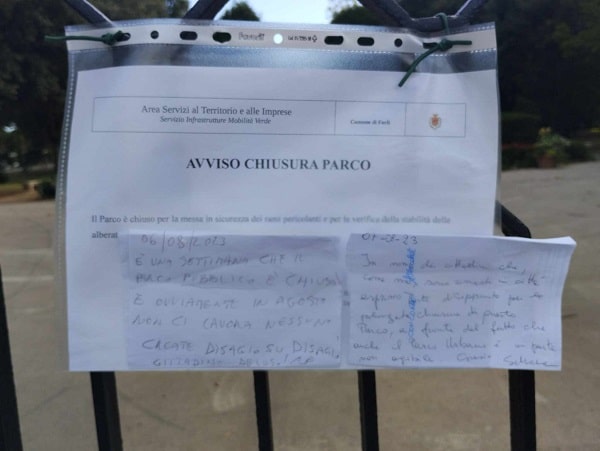 Area Servizi al Territorio e alle Imprese
Servizio Infrastrutture Mobilità Verde
Comune di Forlì
AVVISO CHIUSURA PARCO
Il Parco è chiuso per la messa in sicurezza dei rami pericolanti e per la verifica della stabilità delle
alberat
06/08/2023
È UNA SETTIMANA CHE IL
PARCO PUBBLICO È CHIUSO
E OVVIAMENTE IN AGOSTO
NON CI LAVORA NESSUNO
CREATE DISAGIO SU DISAGIO
CITTADINO DELUSO
23
che
come me
per la
chiusura di questo
Parco, a fronte del fatto che
anche il Parco Urbano è in parte
non agibile Grazie